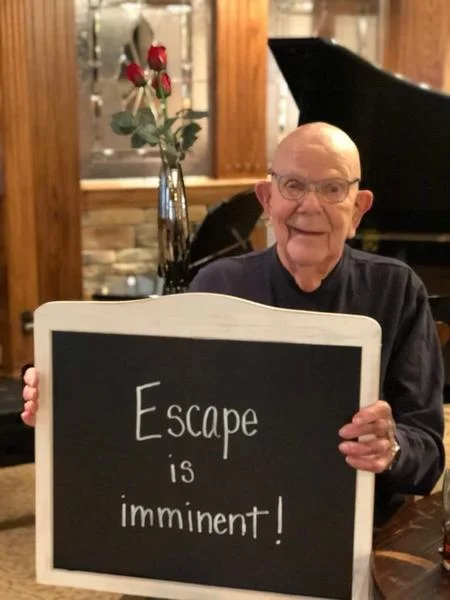 Escape
is
imminent!